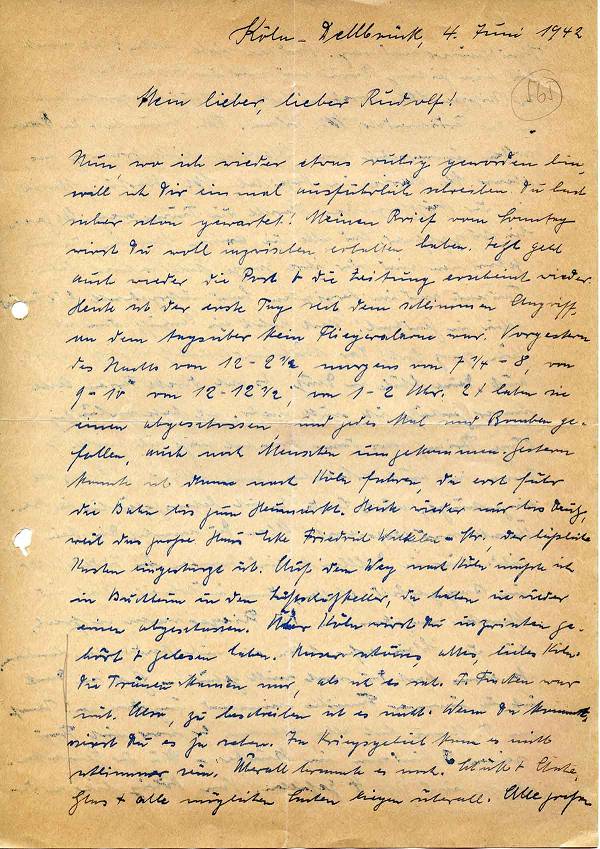 Köln-Dellbrück, 4. Juni 1942
565
Mein lieber, lieber Rudolf!
Nun, wo ich wieder etwas ruhig geworden bin,
will ich Dir einmal ausführlich schreiben. Du hast
schon gewartet! Meinen Brief vom Sonntag
wirst Du wohl inzwischen erhalten haben. Jetzt geht
auch wieder die Post & die Zeitung erscheint wieder.
Heute ist der erste Tag seit dem schlimmen Angriff,
an dem tagsüber kein Fliegeralarm war. Vorgestern
des Nachts von 12-2 ½, morgens von 7 ¼-8, von
9-10 von 12-12 ½, von 1-2 Uhr. 2 x haben sie
einen abgeschossen und jedes Mal sind Bomben ge-
fallen, auch noch Menschen umgekommen. Gestern
konnte ich nach Köln fahren, da erst fuhr
die Bahn bis zum Heumarkt. Heute wieder nur bis Deutz,
weil das große Haus Ecke Friedrich Wilhelm-Str., der
Kasten eingestürzt ist. Auf dem Weg nach Köln mußte ich
in Buchheim in den Luftschutzkeller, da haben sie wieder
einen abgeschossen. Über Köln wirst Du inzwischen ge-
hört & gelesen haben. Unser schönes altes, liebes Köln.
Die Tränen kamen mir, als ich es sah. T. Tinchen war
mit. Also, zu beschreiben ist es nicht. Wenn Du kommst,
wirst Du es ja sehen. Im Kriegsgebiet kann es nicht
schlimmer sein. Überall brennt es noch. Schutt & Asche,
Glas & alle möglichen Sachen liegen überall. Alle großen